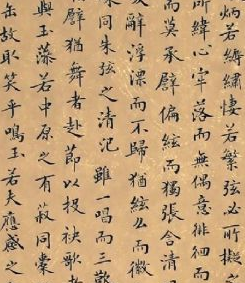 炳若縟繡悽若繁絃必所擬之
所緯心牢落而無偶意徘徊而
而莫承譬偏絃而獨張含清
辭浮漂而不歸猶絃么而徽
同朱弦之清氾雖一唱而三歎
譬猶舞者赴節以投袂歌
與玉藻若中原之有菽同橐
缶顧取笑乎鳴玉若夫應感之